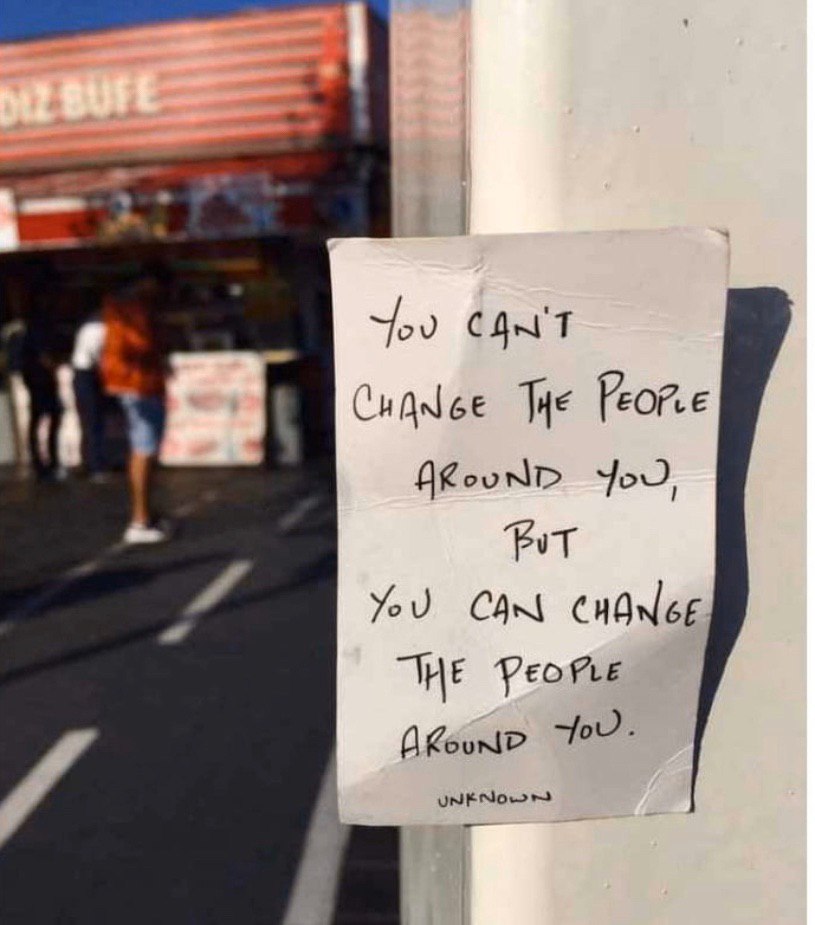 DIZ BÜFE
YOU CAN'T
CHANGE THE PEOPLE
AROUND YOU,
BUT
YOU CAN CHANGE
THE PEOPLE
AROUND YOU.
UNKNOWN